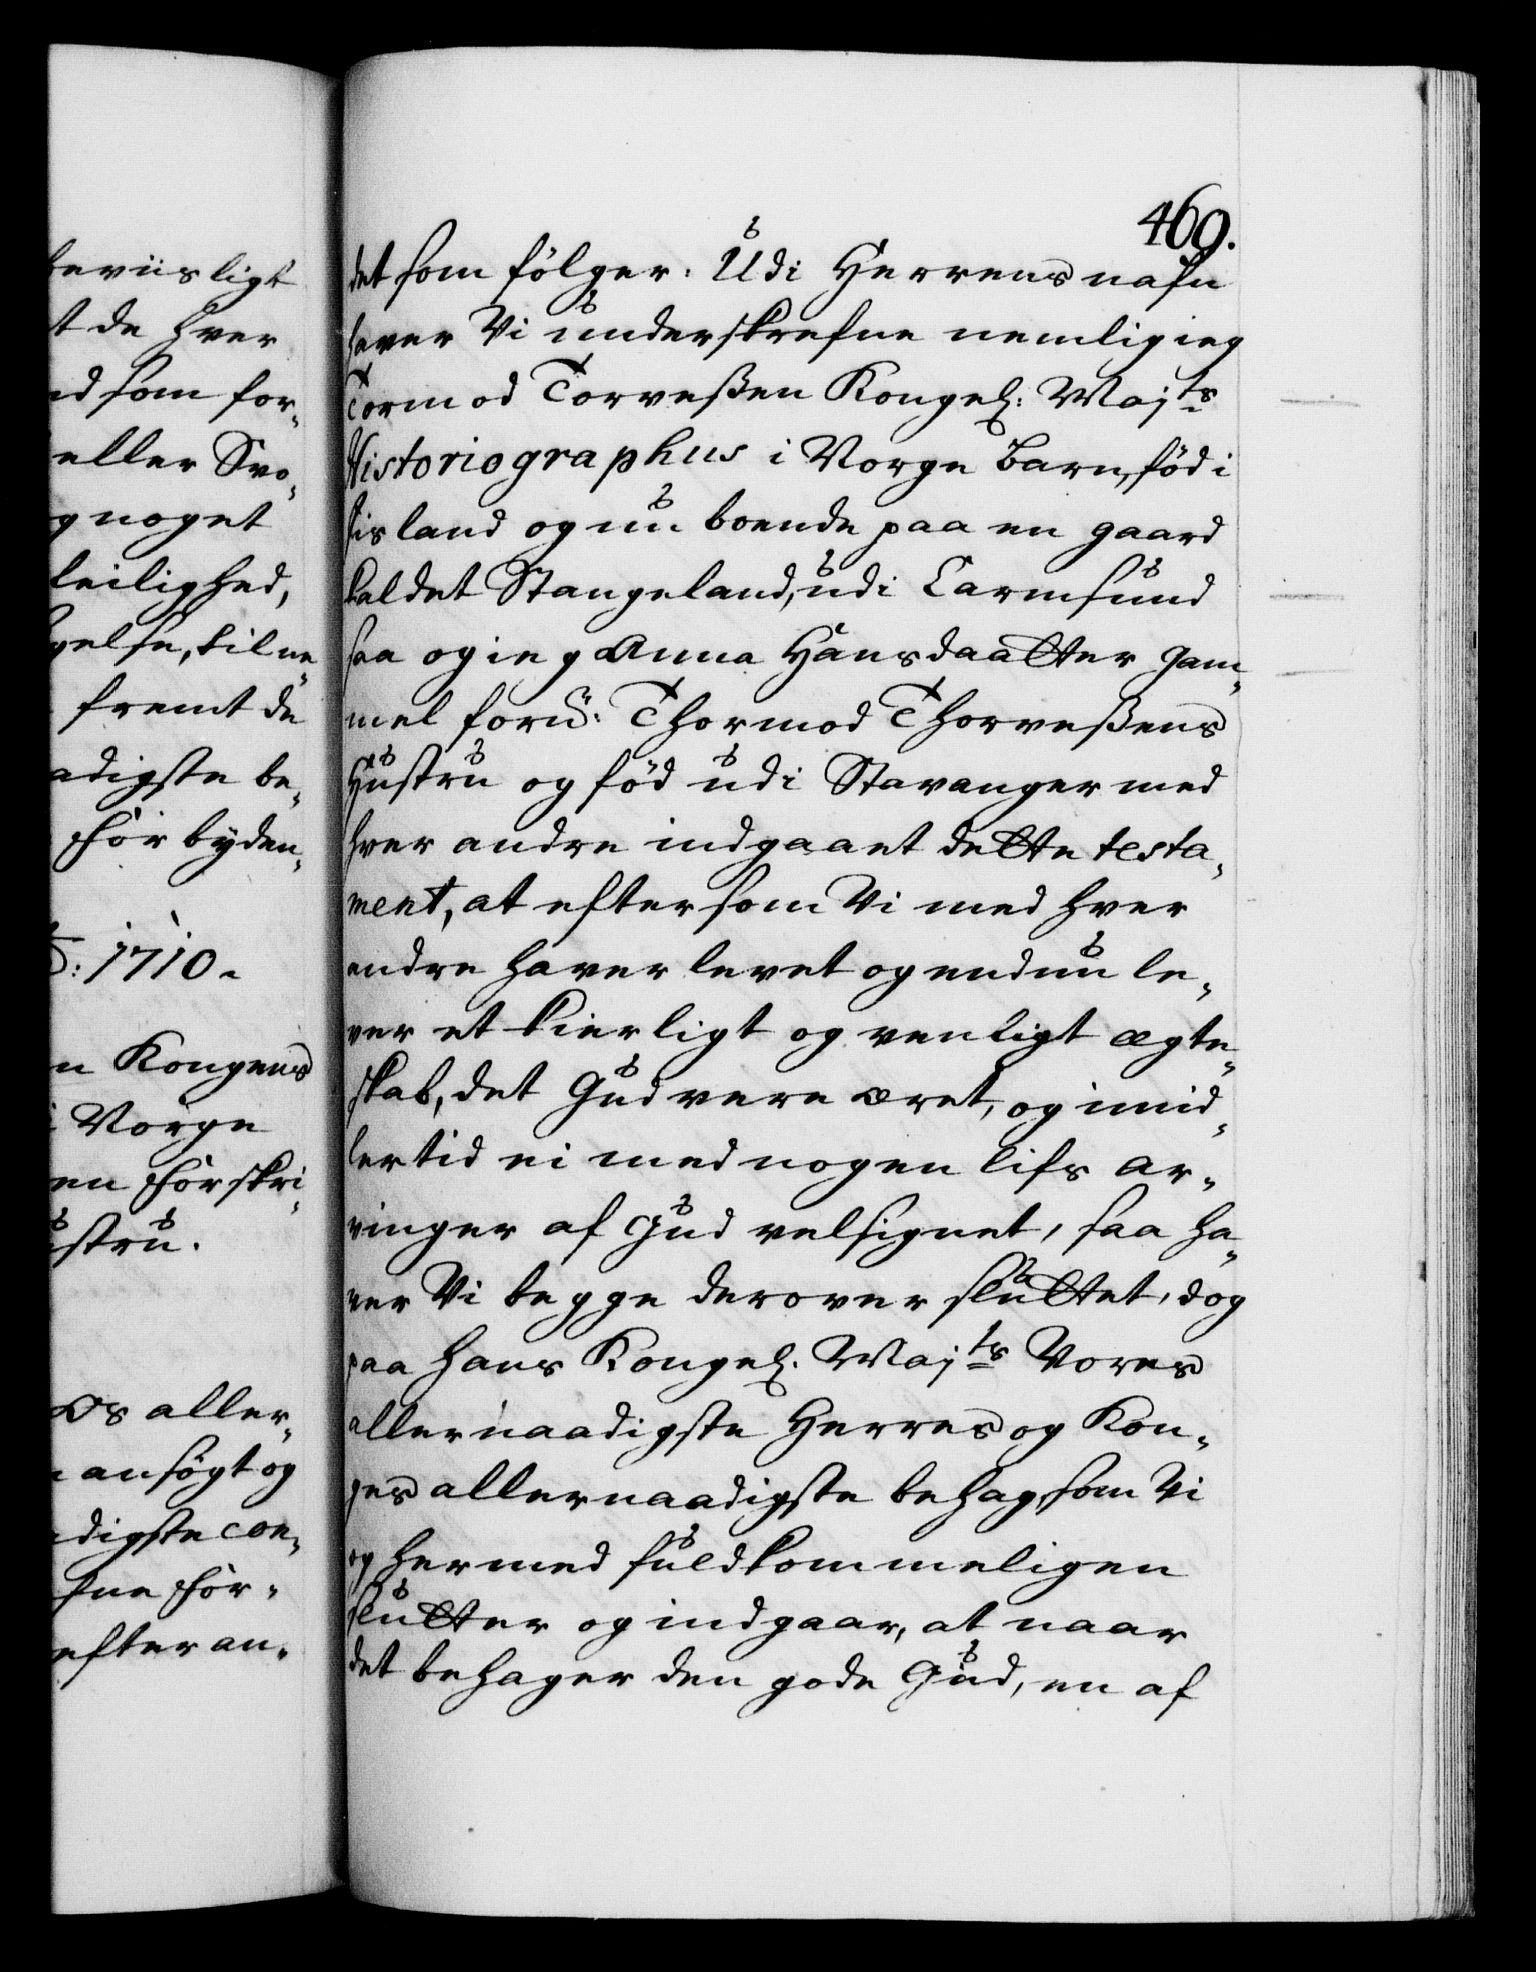 beviisligt
t de hver
d som for-
eller Svo-
g noget
leilighed,
gelse, til ne-
fremt de
adigste be-
for byden-
: 1710.
n Kongens
i Norge
en forskri-
ustru.
Os aller-
ansögt og
digste con-
sne for-
efter an-
469.
det som fölger: Udi Herrens nafn
haver Vi underskrefne nemlig ieg
Tormod Torveßen Kongel: Majts
Historiographus i Norge barn, föd i
Iisland og nu boende paa en gaard
kaldet Stangeland, udi Carmsund
saa og ieg Anna Hansdaatter gam-
mel foru: Thormod Thorveßens
Hustru og föd udi Stavanger med
hver andre indgaaet dette testa-
ment, at eftersom Vi med hver
andre haver levet og endnu le-
ver et kierligt og venligt ægte-
skab, det Gud vere æret, og imid-
lertid ei med nogen lifs ar-
vinger af Gud velsignet, saa ha-
ver Vi begge derover sluttet, dog
paa Hans Kongel. Majts Vores
allernaadigste Herres og Kon-
ges allernaadigste behag, som Vi
og hermed fuldkommeligen
slutter og indgaar, at naar
det behager den gode Gud, en af